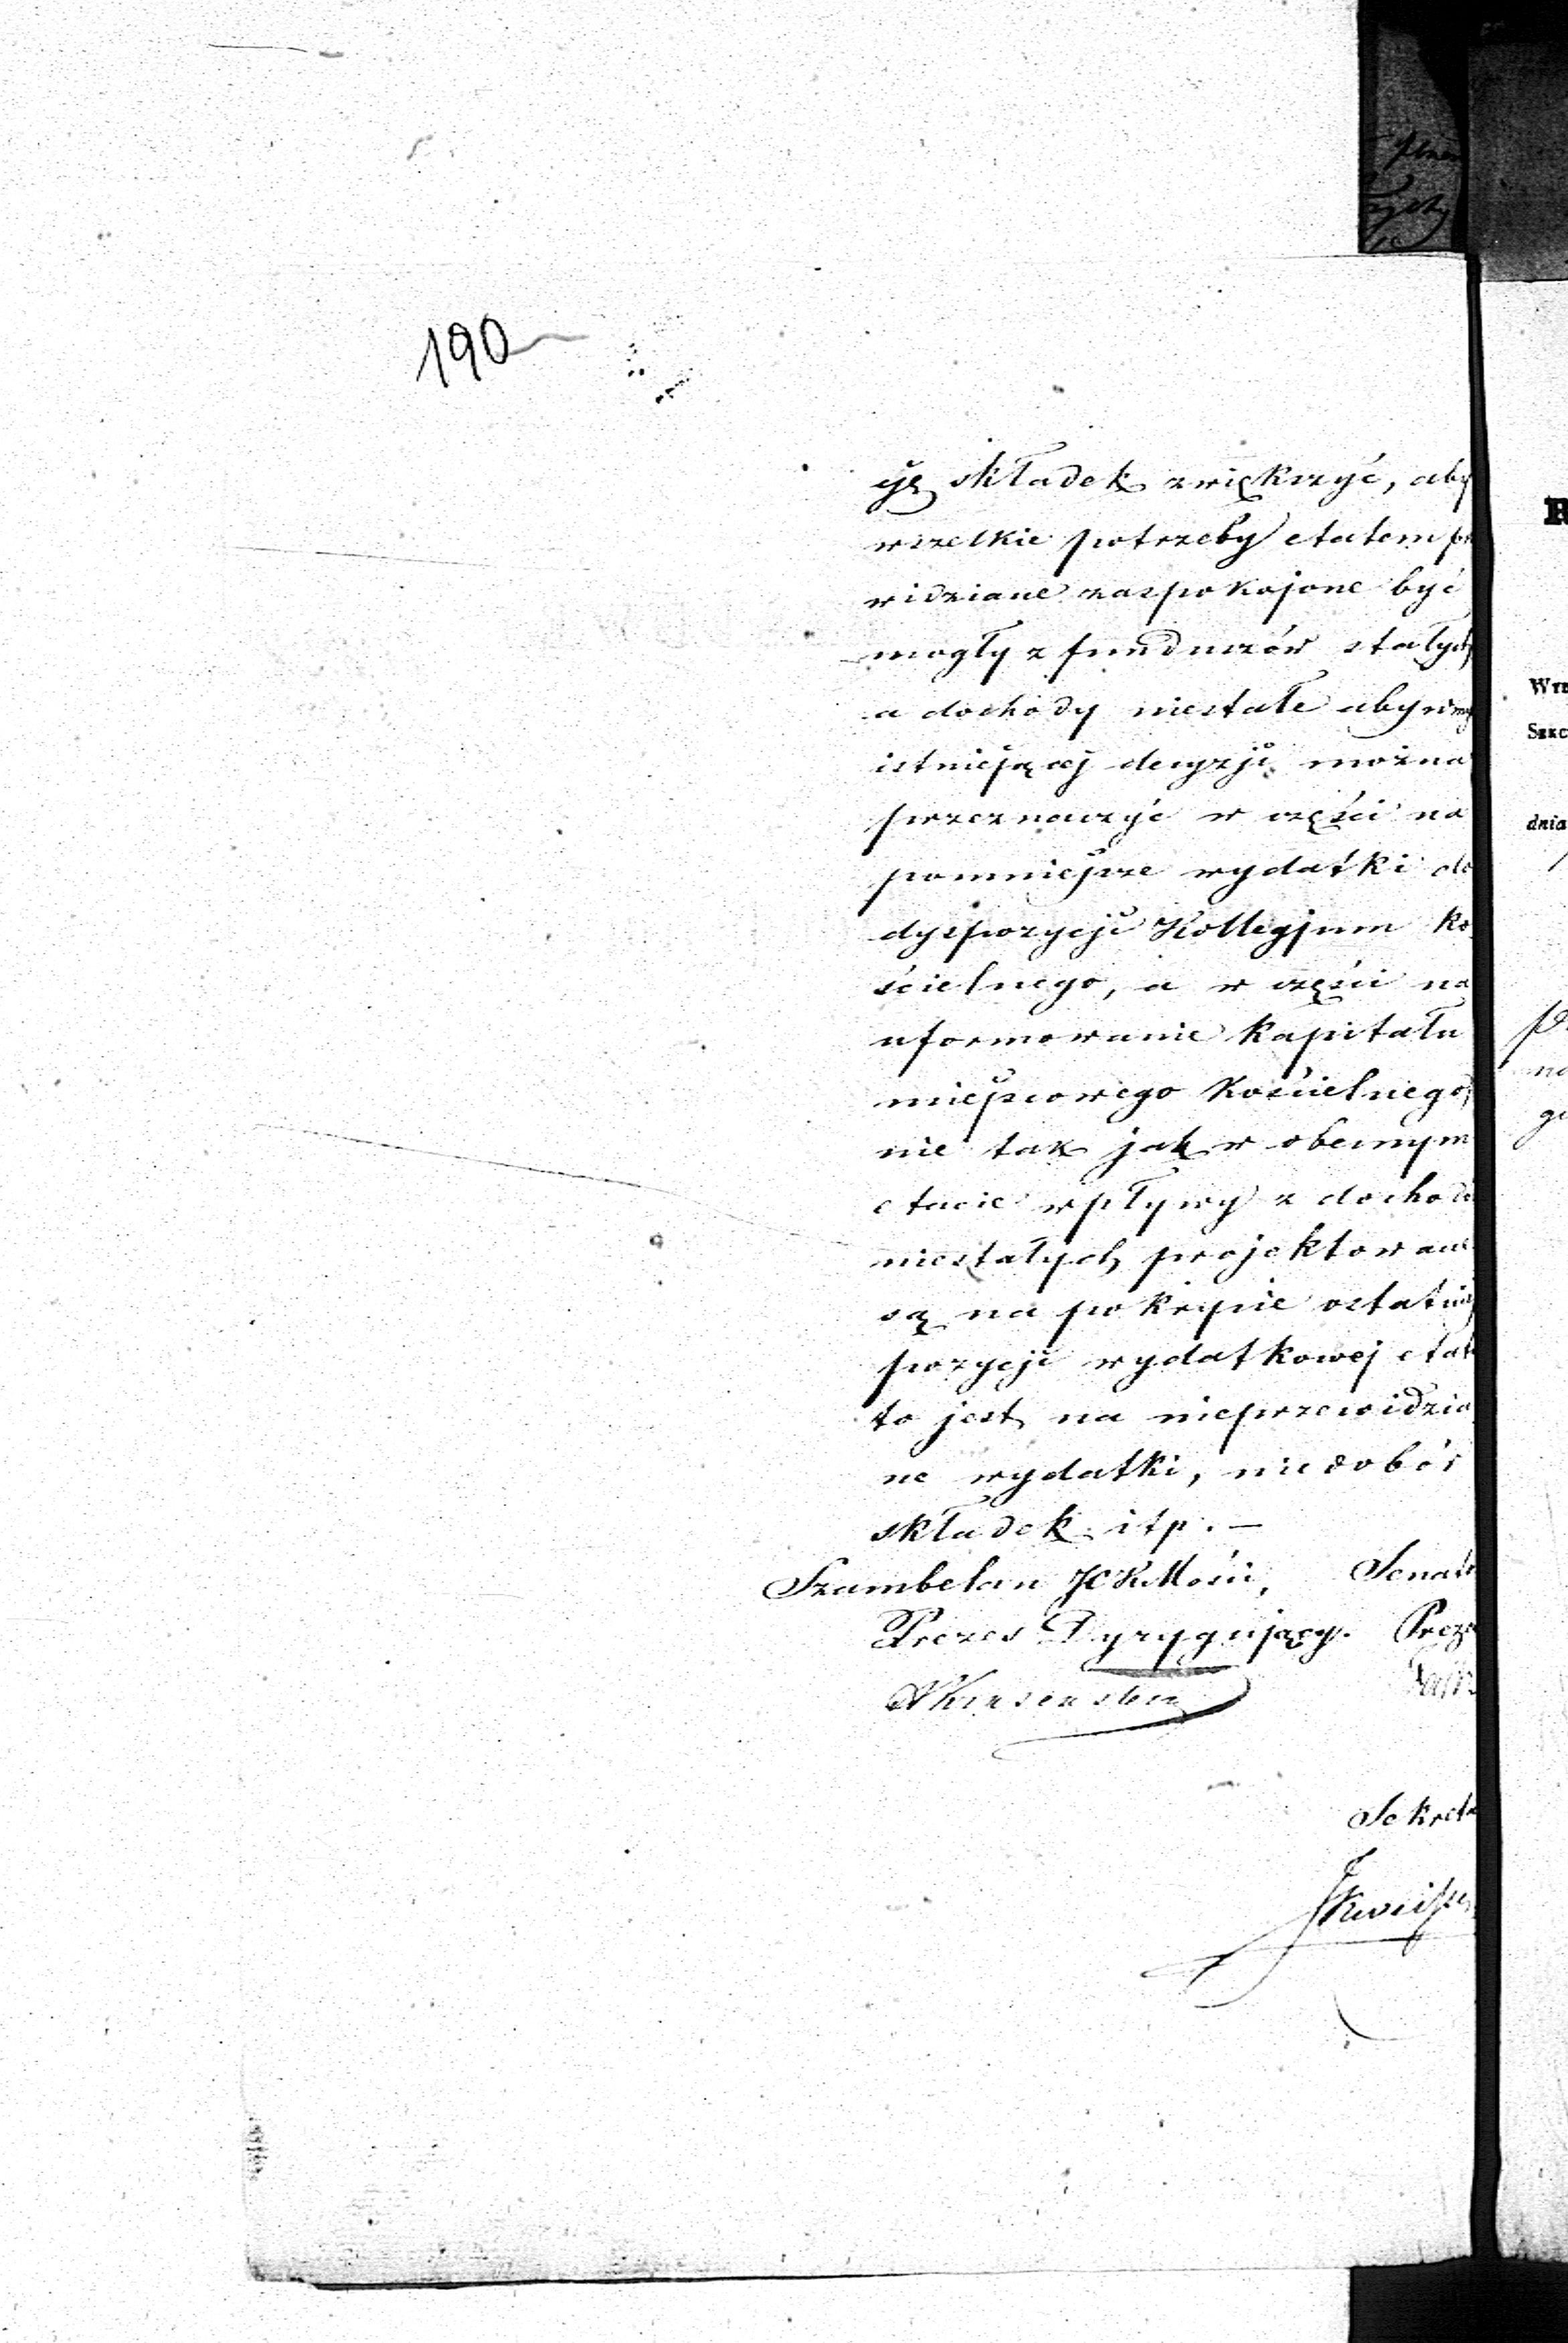 190
cję składek zwiększyć, aby
wszelkie potrzeby etatem
widziane zaspokojone być
mogły z funduszów stałych
a dochody niestałe aby
istniejącej decyzji można
przeznaczyć w części na
pomniejsze wydatki do
dyspozycji Kollegjum Ko
ścielnego, a w części na
uformowanie Kapitału
miejscowego Kościelnego,
nie tak jak w obecnym
etacie wpływy z docho
niestałych projektowane
są na pokrycie ostatniej
pozycji wydatkowej etat
to jest na nieprzewidzia
ne wydatki, niedobór
składek itp. —
Szambelan JCKMości, Senat
Prezes Dyrygujący. Preze
Sekreta
R
Wyd
Sekc
dnia